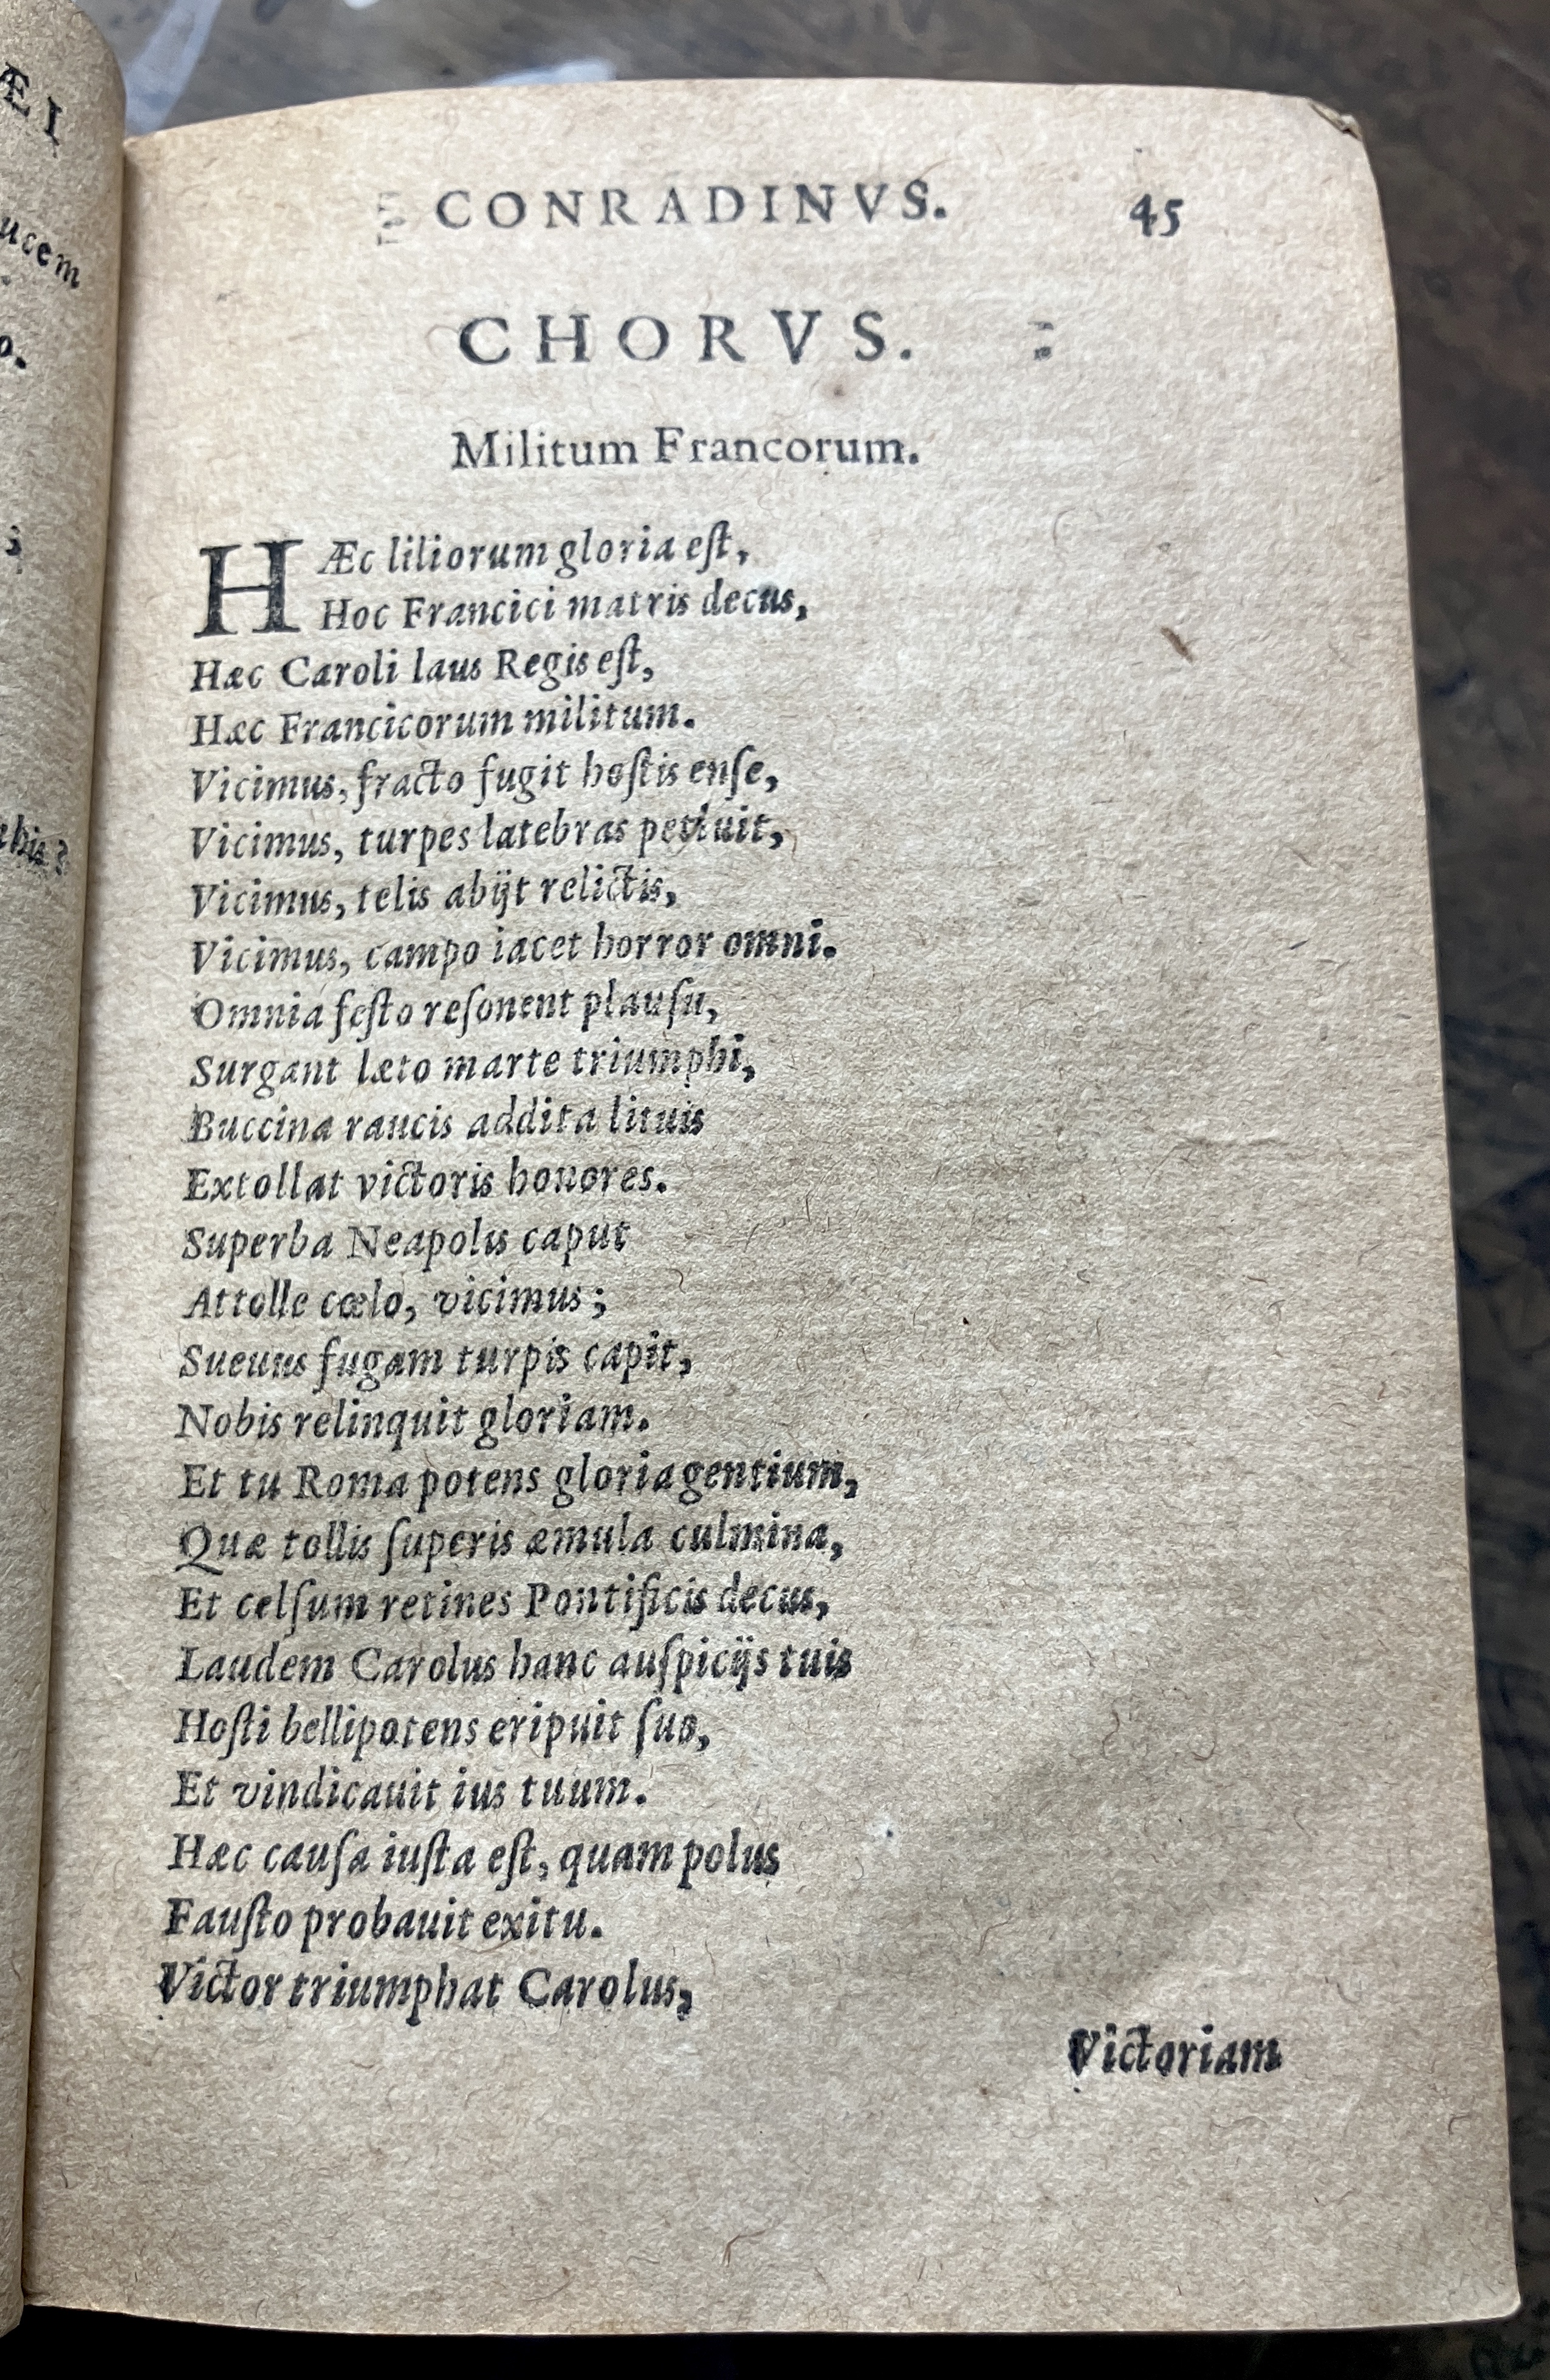 ÆI
ucem
o.
;
this?
CONRADINVS. 45
CHORVS.
Militum Francorum.
HÆc liliorum gloria eſt,
Hoc Francici matris decus,
Hæc Caroli laus Regis eſt,
Hæc Francicorum militum.
Vicimus, fracto fugit hoſtis enſe,
Vicimus, turpes latebras petiuit,
Vicimus, telis abijt relictis,
Vicimus, campo iacet horror omni.
Omnia feſto reſonent plauſu,
Surgant læto marte triumphi,
Buccina raucis addita lituis
Extollat victoris honores.
Superba Neapolis caput
Attolle cœlo, vicimus;
Sueuus fugam turpis capit,
Nobis relinquit gloriam.
Et tu Roma potens gloria gentium,
Quæ tollis ſuperis æmula culmina,
Et celſum retines Pontificis decus,
Laudem Carolus hanc auſpicijs tuis
Hoſti bellipotens eripuit ſuo,
Et vindicauit ius tuum.
Hæc cauſa iuſta eſt, quam polus
Fauſto probauit exitu.
Victor triumphat Carolus,
Victoriam